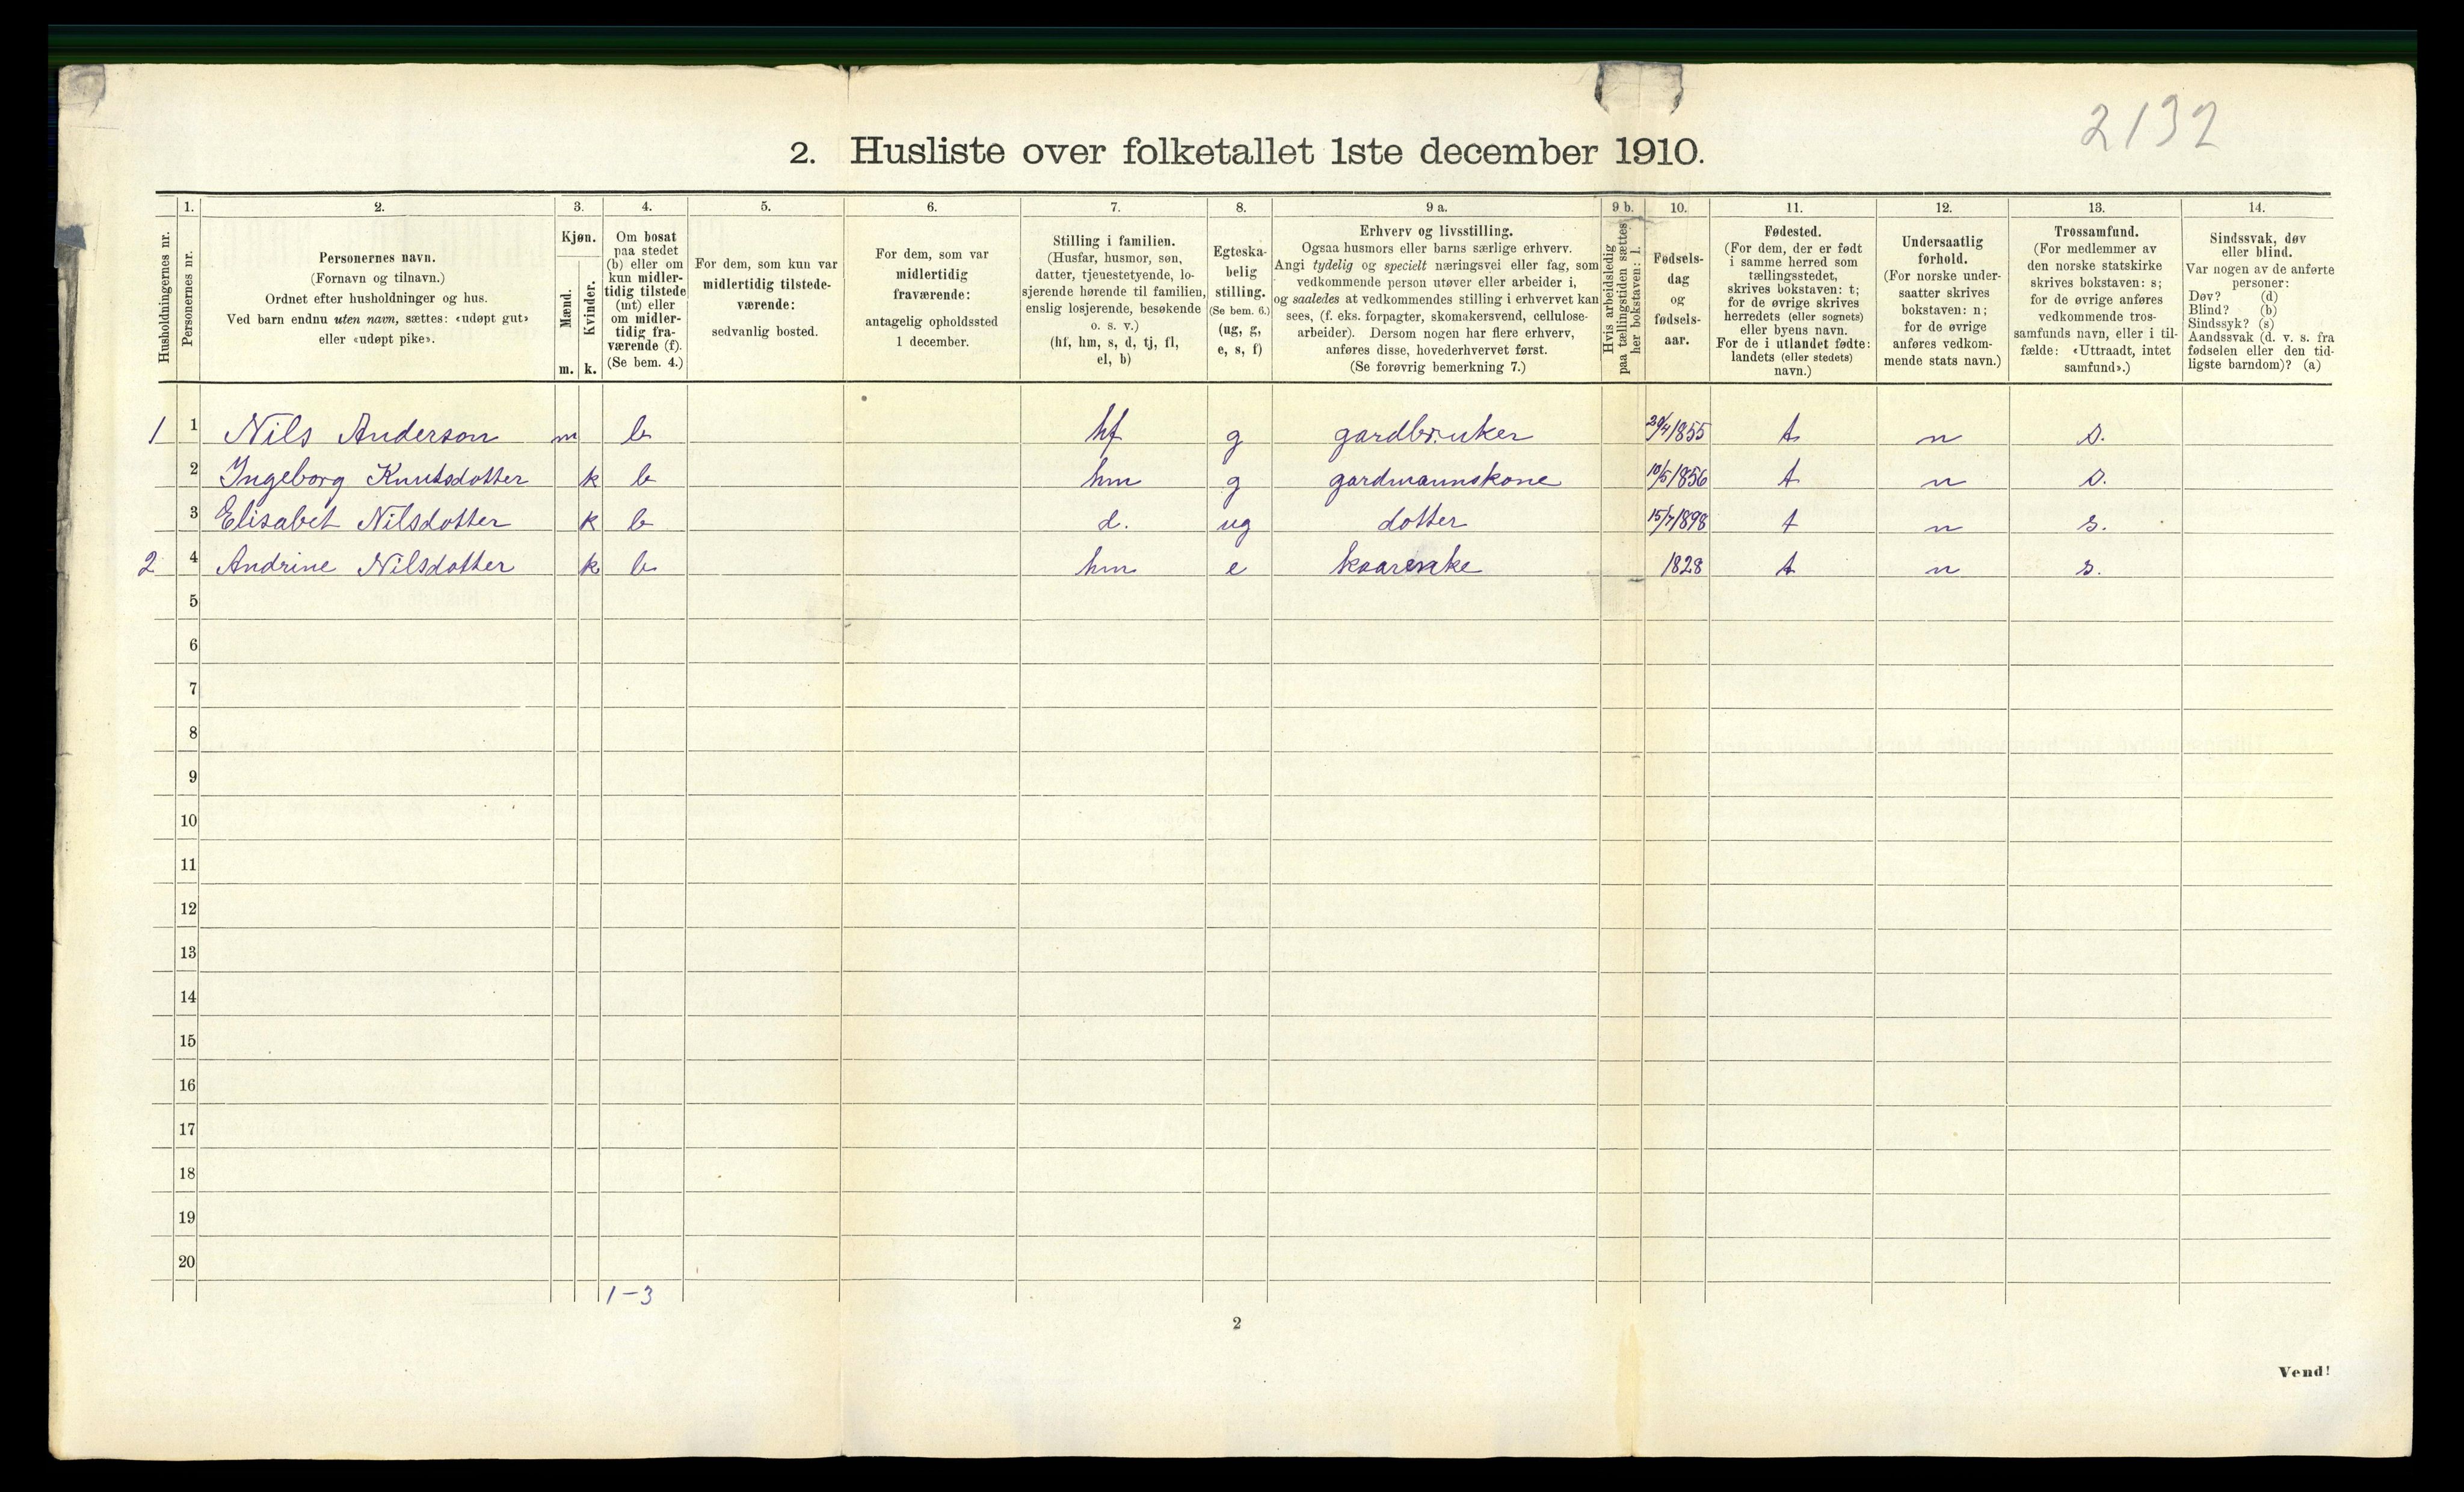 2132
2. Husliste over folketallet 1ste december 1910.
1. 2. 3. 4. 5. 6. 7. 8. 9 a. 9 b. 10. 11. 12. 13. 14.
Husholdningernes nr.
Personernes nr.
Personernes navn.
(Fornavn og tilnavn.)
Ordnet efter husholdninger og hus.
Ved barn endnu uten navn, sættes: «udøpt gut»
eller «udøpt pike».
Kjøn.
Mænd.
Kvinder.
m. k.
Om bosat
paa stedet
(b) eller om
kun midler-
tidig tilstede
(mt) eller
om midler-
tidig fra-
værende (f).
(Se bem. 4.)
For dem, som kun var
midlertidig tilstede-
værende:
sedvanlig bosted.
For dem, som var
midlertidig
fraværende:
antagelig opholdssted
1 december.
Stilling i familien.
(Husfar, husmor, søn,
datter, tjenestetyende, lo-
sjerende hørende til familien,
enslig losjerende, besøkende
o. s. v.)
(hf, hm, s, d, tj, fl,
el, b)
Egteska-
belig
stilling.
(Se bem. 6.)
(ug, g,
e, s, f)
Erhverv og livsstilling.
Ogsaa husmors eller barns særlige erhverv.
Angi tydelig og specielt næringsvei eller fag, som
vedkommende person utøver eller arbeider i,
og saaledes at vedkommendes stilling i erhvervet kan
sees, (f. eks. forpagter, skomakersvend, cellulose-
arbeider). Dersom nogen har flere erhverv,
anføres disse, hovederhvervet først.
(Se forøvrig bemerkning 7.)
Hvis arbeidsledig
paa tællingstiden sættes
her bokstaven: l.
Fødsels-
dag
og
fødsels-
aar.
Fødested.
(For dem, der er født
i samme herred som
tællingsstedet,
skrives bokstaven: t;
for de øvrige skrives
herredets (eller sognets)
eller byens navn.
For de i utlandet fødte:
landets (eller stedets)
navn.)
Undersaatlig
forhold.
(For norske under-
saatter skrives
bokstaven: n;
for de øvrige
anføres vedkom-
mende stats navn.)
Trossamfund.
(For medlemmer av
den norske statskirke
skrives bokstaven: s;
for de øvrige anføres
vedkommende tros-
samfunds navn, eller i til-
fælde: «Uttraadt, intet
samfund».)
Sindssvak, døv
eller blind.
Var nogen av de anførte
personer:
Døv? (d)
Blind? (b)
Sindssyk? (s)
Aandssvak (d. v. s. fra
fødselen eller den tid-
ligste barndom)? (a)
1 1 Nils Anderson m b hf g gardbruker 29/4 1855 t n s.
2 Ingeborg Knutsdotter k b hm g gardmannskone 10/5 1856 t n s.
3 Elisabet Nilsdotter k b d. ug dotter 15/7 1898 t n s.
2 4 Andrine Nilsdotter k b hm e kaarenke 1828 t n s.
5
6
7
8
9
10
11
12
13
14
15
16
17
18
19
20
1-3
2
Vend!